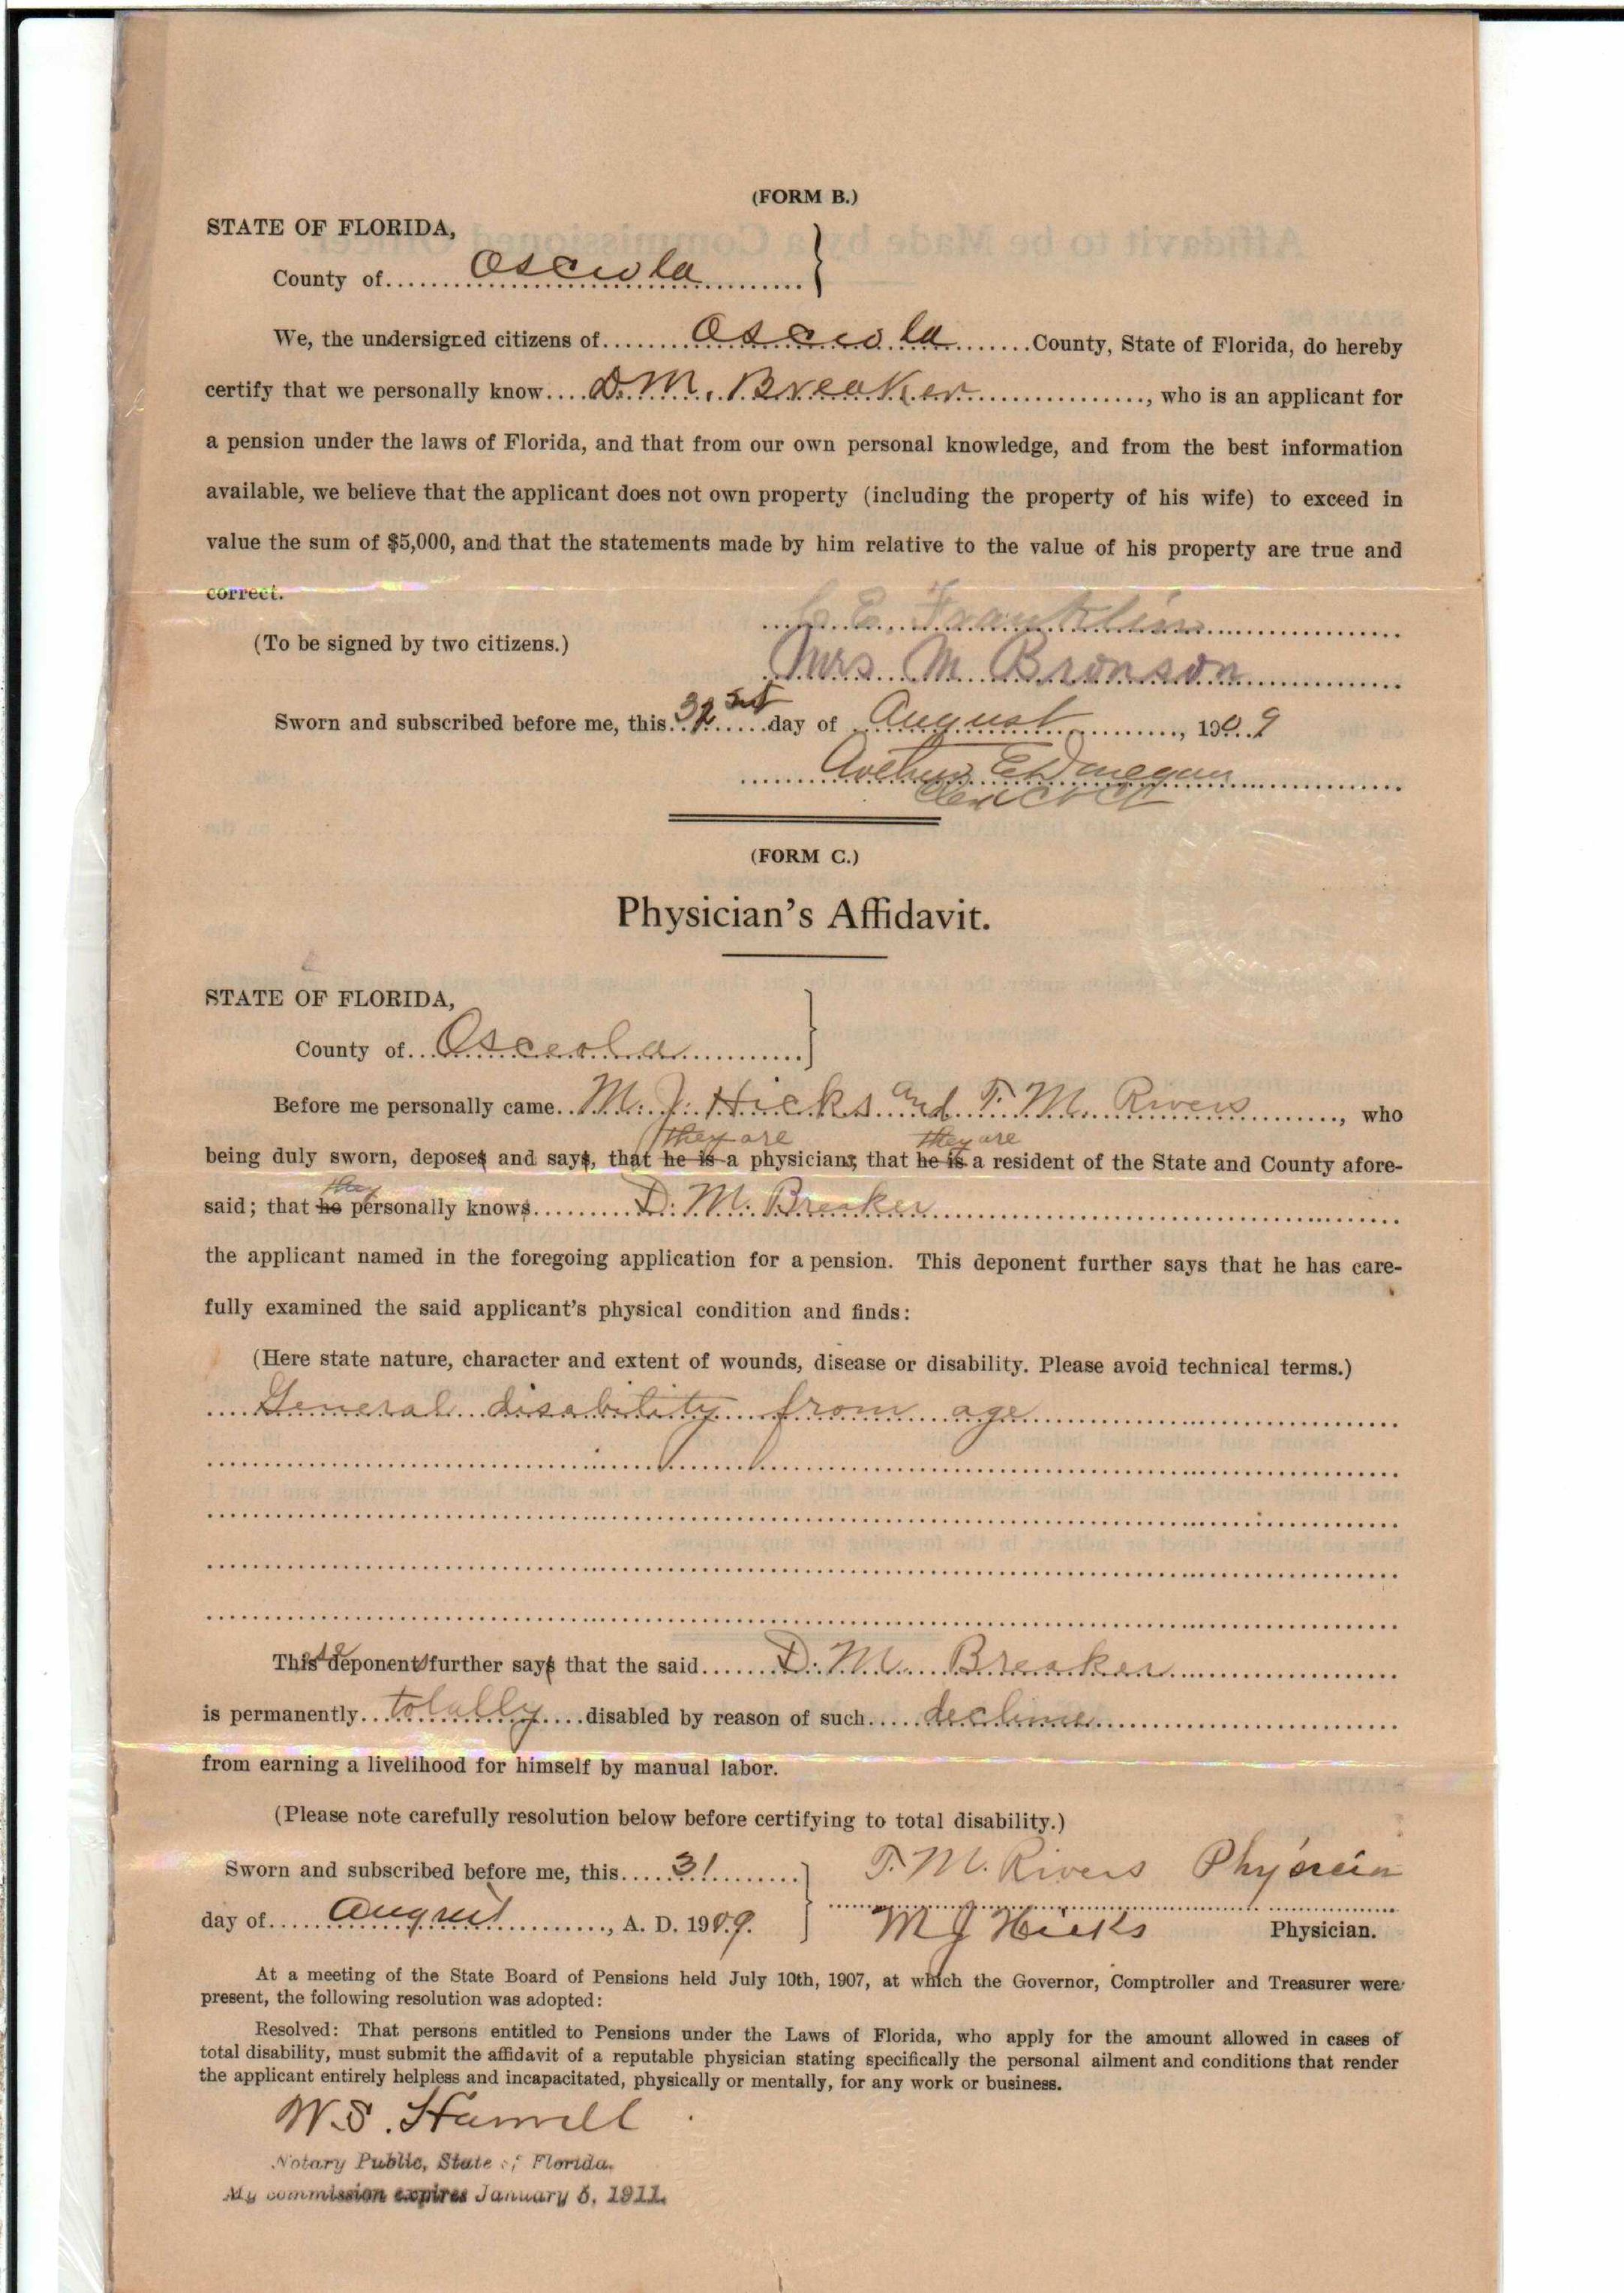 (FORM B.)
STATE OF FLORIDA,
County of Osceola
We, the undersigned citizens of Osceola County, State of Florida, do hereby
certify that we personally know D. M. Breaker, who is an applicant for
a pension under the laws of Florida, and that from our own personal knowledge, and from the best information
available, we believe that the applicant does not own property (including the property of his wife) to exceed in
value the sum of $5,000, and that the statements made by him relative to the value of his property are true and
correct.
C. E. Franklin
(To be signed by two citizens.)
Mrs. M. Bronson
Sworn and subscribed before me, this 31st day of August, 1909
Arthur E Donegan
Clerk
(FORM C.)
Physician's Affidavit.
STATE OF FLORIDA,
County of Osceola
Before me personally came M. J. Hicks and T. M. Rivers, who
they are they are
being duly sworn, deposes and says, that he is a physicians, that he is a resident of the State and County afore-
they
said; that he personally knows D. M. Breaker
the applicant named in the foregoing application for a pension. This deponent further says that he has care-
fully examined the said applicant's physical condition and finds:
(Here state nature, character and extent of wounds, disease or disability. Please avoid technical terms.)
General disability from age
These deponents further says that the said D. M. Breaker
is permanently totally disabled by reason of such decline
from earning a livelihood for himself by manual labor.
(Please note carefully resolution below before certifying to total disability.)
Sworn and subscribed before me, this 31
T. M. Rivers Physicin
day of August, A. D. 1909.
M J Hicks Physician.
At a meeting of the State Board of Pensions held July 10th, 1907, at which the Governor, Comptroller and Treasurer were
present, the following resolution was adopted:
Resolved: That persons entitled to Pensions under the Laws of Florida, who apply for the amount allowed in cases of
total disability, must submit the affidavit of a reputable physician stating specifically the personal ailment and conditions that render
the applicant entirely helpless and incapacitated, physically or mentally, for any work or business.
W. S.
Notary Public, State of Florida.
My commission expires January 5, 1911.